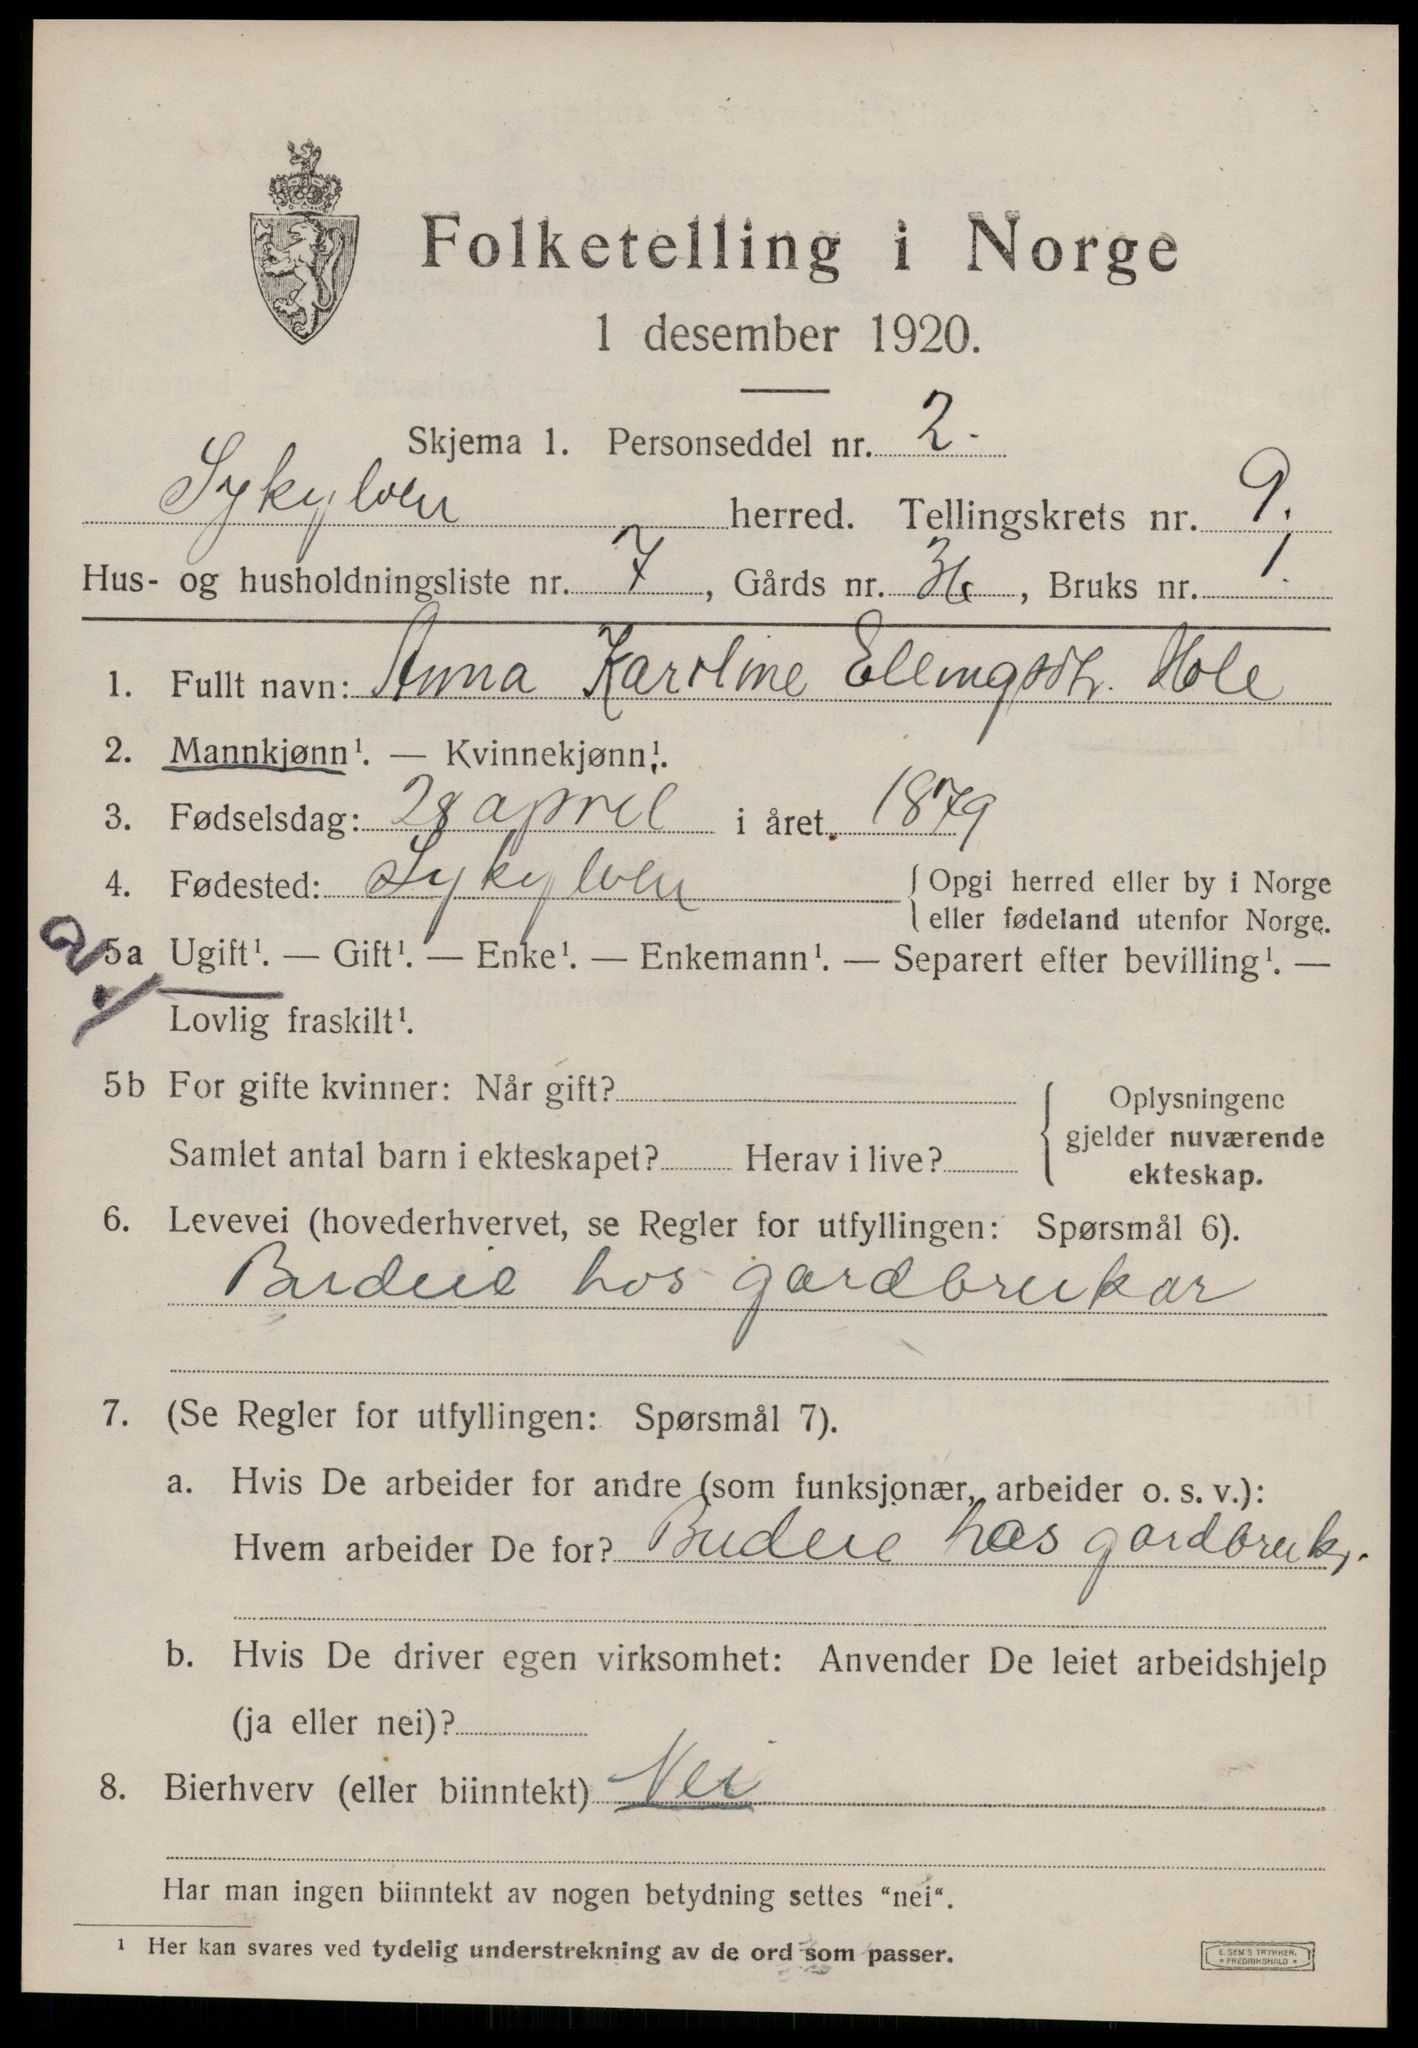 Folketelling i Norge
1 desember 1920.
Skjema 1. Personseddel nr. 2.
Sykylven herred. Tellingskrets nr. 9.
Hus- og husholdningsliste nr. 7, Gårds nr. 36, Bruks nr. 1.
1. Fullt navn: Anna Karoline Ellingsdtr. Hole
2. Mannkjønn¹. — Kvinnekjønn¹.
3. Fødselsdag: 28 april i året 1879
4. Fødested: Sykylven { Opgi herred eller by i Norge
eller fødeland utenfor Norge.
5a Ugift¹. — Gift¹. — Enke¹. — Enkemann¹. — Separert efter bevilling¹. —
Lovlig fraskilt¹.
5b For gifte kvinner: Når gift? { Oplysningene
gjelder nuværende
Samlet antal barn i ekteskapet? Herav i live?
ekteskap.
6. Levevei (hovederhvervet, se Regler for utfyllingen: Spørsmål 6).
Budeie hos gardbrukar
7. (Se Regler for utfyllingen: Spørsmål 7).
a. Hvis De arbeider for andre (som funksjonær, arbeider o. s. v.):
Hvem arbeider De for? Budeie hos gardbruk.
b. Hvis De driver egen virksomhet: Anvender De leiet arbeidshjelp
(ja eller nei)?
8. Bierhverv (eller biinntekt) Nei
Har man ingen biinntekt av nogen betydning settes "nei".
¹ Her kan svares ved tydelig understrekning av de ord som passer.
E. SEM'S TRYKKERI,
* FREDRIKSHALD *